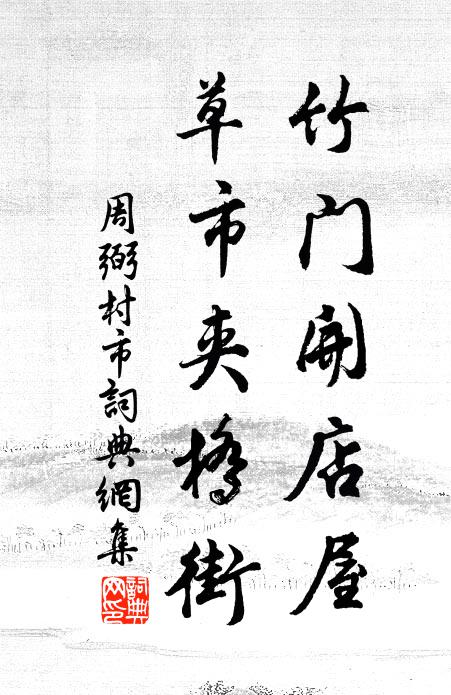 竹门開店屋
草市夹橋街
周弼村市詞典網集
詞典
网印